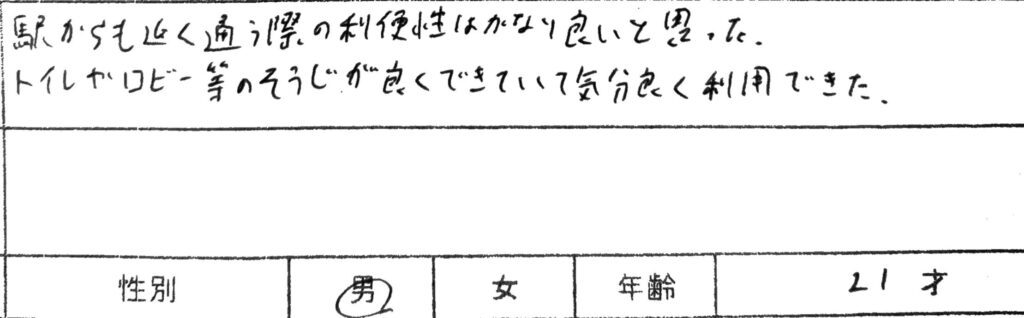 駅からも近く通う際の利便性はかなり良いと思った.
トイレやロビー等のそうじが良くできていて気分良く利用できた.
性別 男 女 年齢 21才